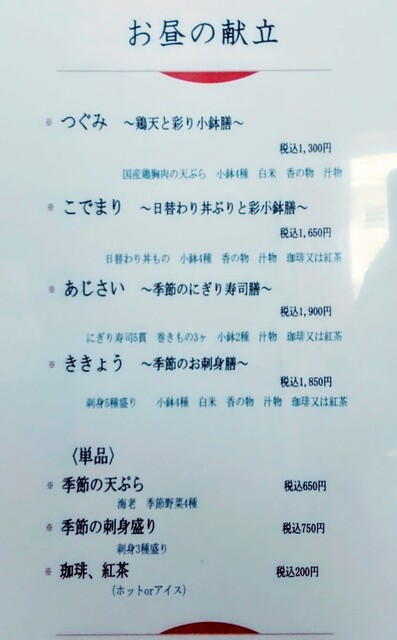 お昼の献立
※ つぐみ ～鶏天と彩り小鉢膳～
税込1,300円
国産鶏胸肉の天ぷら 小鉢4種 白米 香の物 汁物
※ こでまり ～日替わり丼ぶりと彩小鉢膳～
税込1,650円
日替わり丼もの 小鉢4種 香の物 汁物 珈琲又は紅茶
※ あじさい ～季節のにぎり寿司膳～
税込1,900円
にぎり寿司5貫 巻きもの3ヶ 小鉢2種 汁物 珈琲又は紅茶
※ ききょう ～季節のお刺身膳～
税込1,850円
刺身5種盛り 小鉢4種 白米 香の物 汁物 珈琲又は紅茶
〈単品〉
※ 季節の天ぷら 税込650円
海老 季節野菜4種
※ 季節の刺身盛り 税込750円
刺身3種盛り
※ 珈琲、紅茶 税込200円
(ホットorアイス)